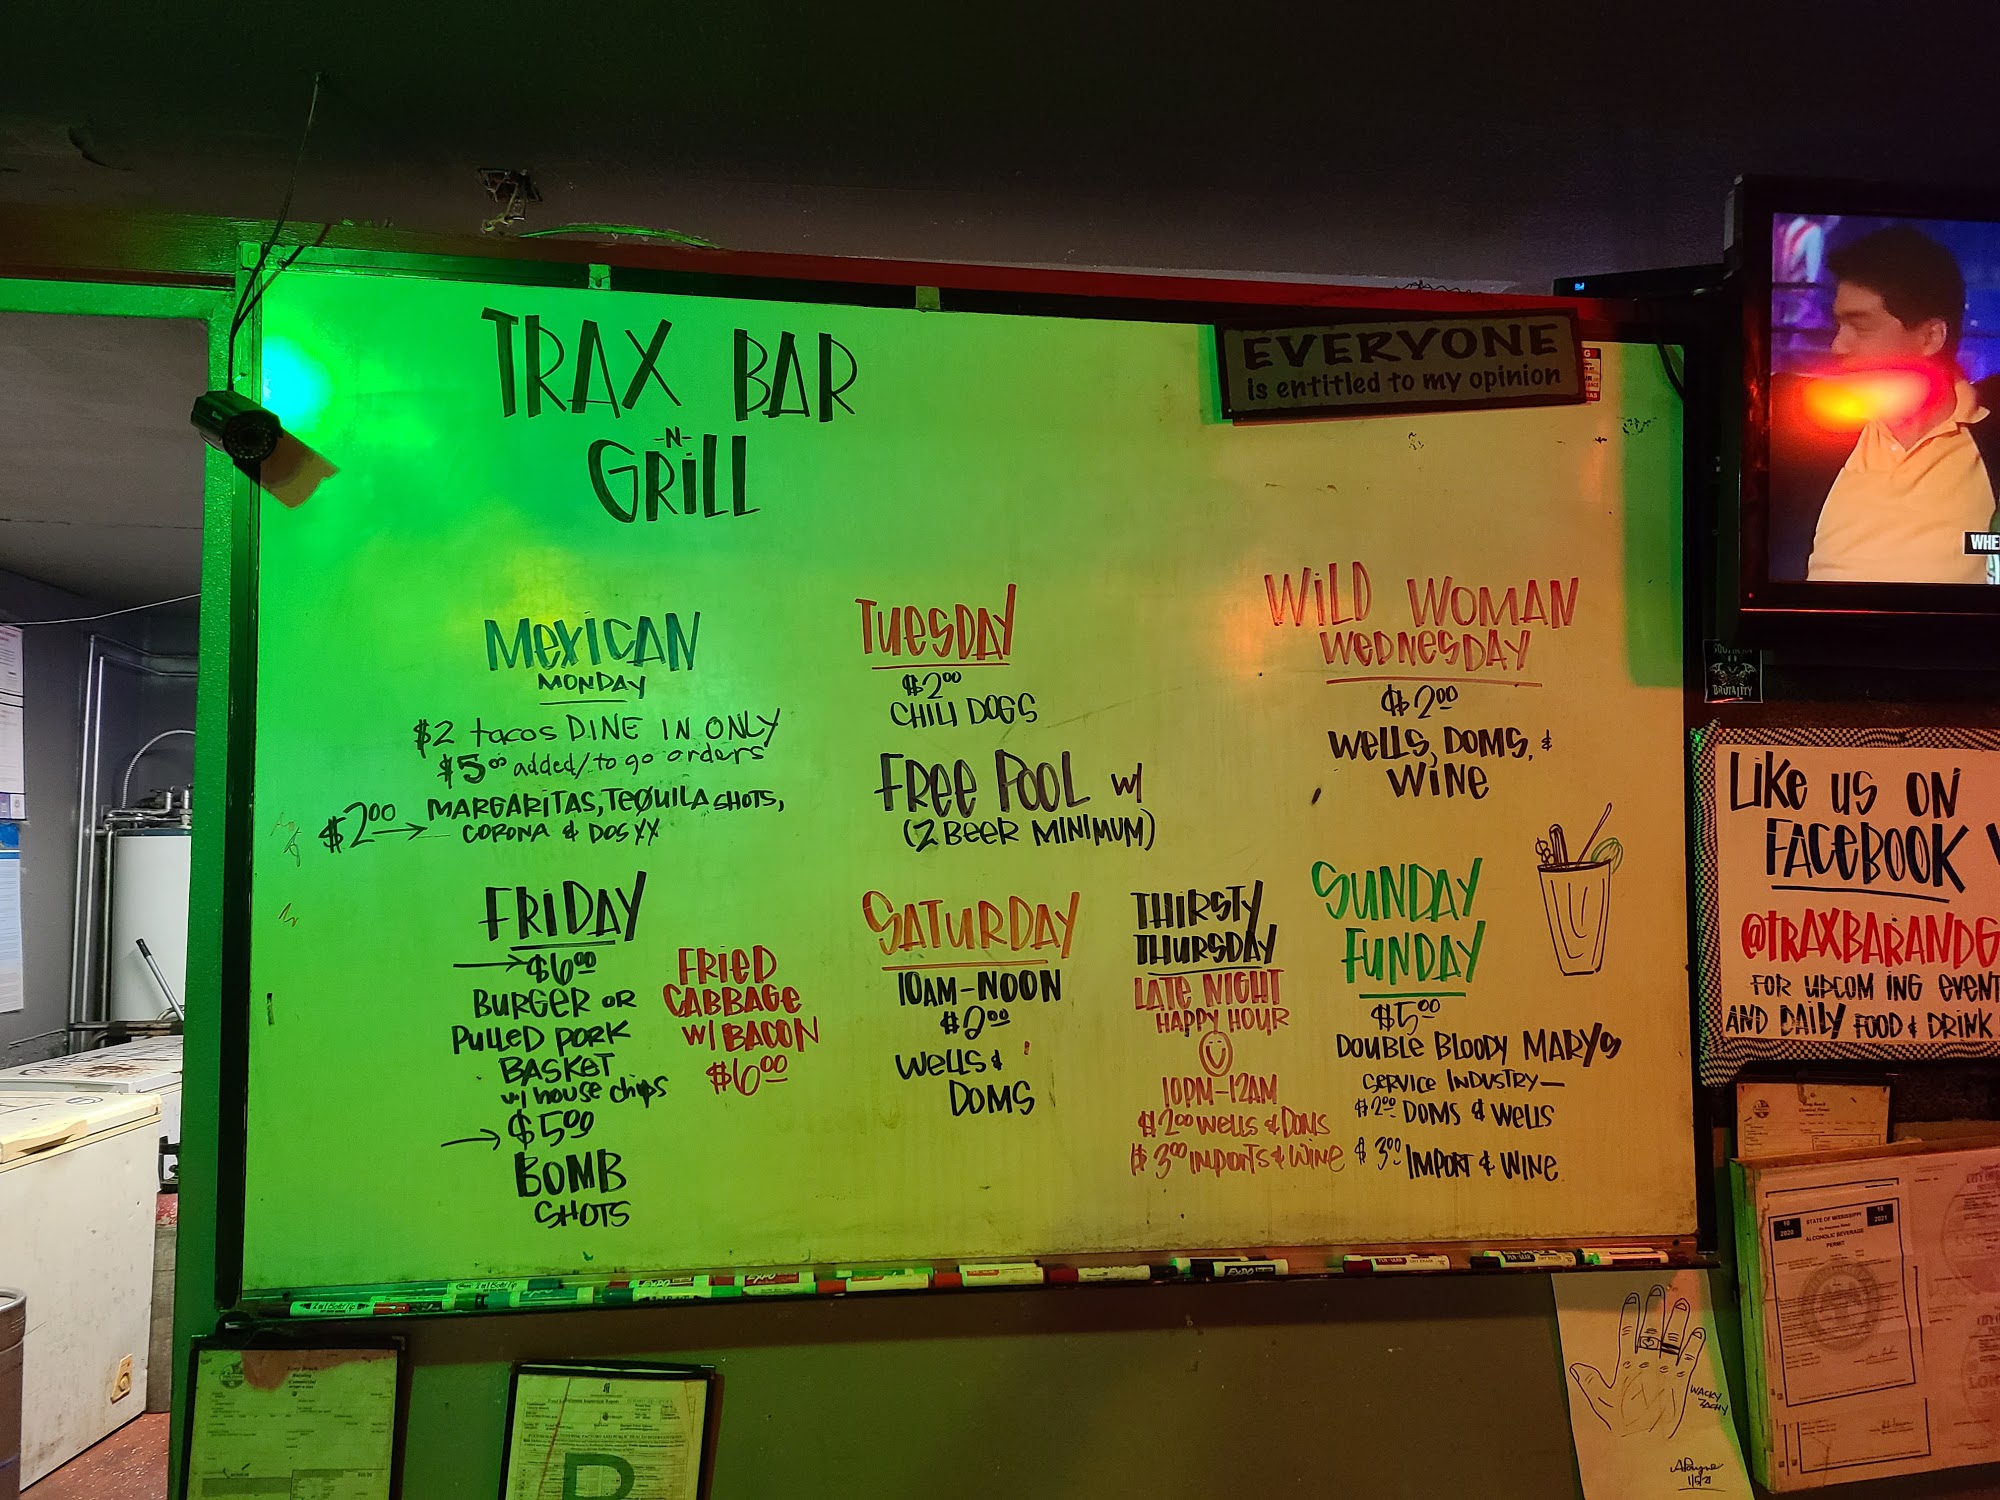 TRAX BAR
-N-
GRILL
EVERYONE
is entitled to my opinion
MEXICAN
MONDAY
$2 tacos DINE IN ONLY
$5.00 added/to go orders
$2.00 → MARGARITAS, TEQUILA SHOTS,
CORONA & DOS XX
TUESDAY
$2.00
CHILI DOGS
FREE POOL w/
(2 BEER MINIMUM)
WILD WOMAN
WEDNESDAY
$2.00
WELLS, DOMS, &
WINE
FRIDAY
→ $6.00
BURGER OR
PULLED PORK
BASKET
w/ house chips
→ $5.00
BOMB
SHOTS
FRIED
CABBAGE
W/ BACON
$6.00
SATURDAY
10AM-NOON
$2.00
WELLS &
DOMS
THIRSTY
THURSDAY
LATE NIGHT
HAPPY HOUR
10PM-12AM
$2.00 WELLS & DOMS
$3.00 IMPORTS & WINE
SUNDAY
FUNDAY
$5.00
DOUBLE BLOODY MARYS
SERVICE INDUSTRY—
$2.00 DOMS & WELLS
$3.00 IMPORT & WINE
WHE
BRUTALITY
LIKE US ON
FACEBOOK
@TRAXBARANDG
FOR UPCOMING EVENT
AND DAILY FOOD & DRINK
EXPO
EXPO
EXPO
10
2020
STATE OF MISSISSIPPI
ALCOHOLIC BEVERAGE
PERMIT
10
2021
WACKY
ZACHY
1/5/21